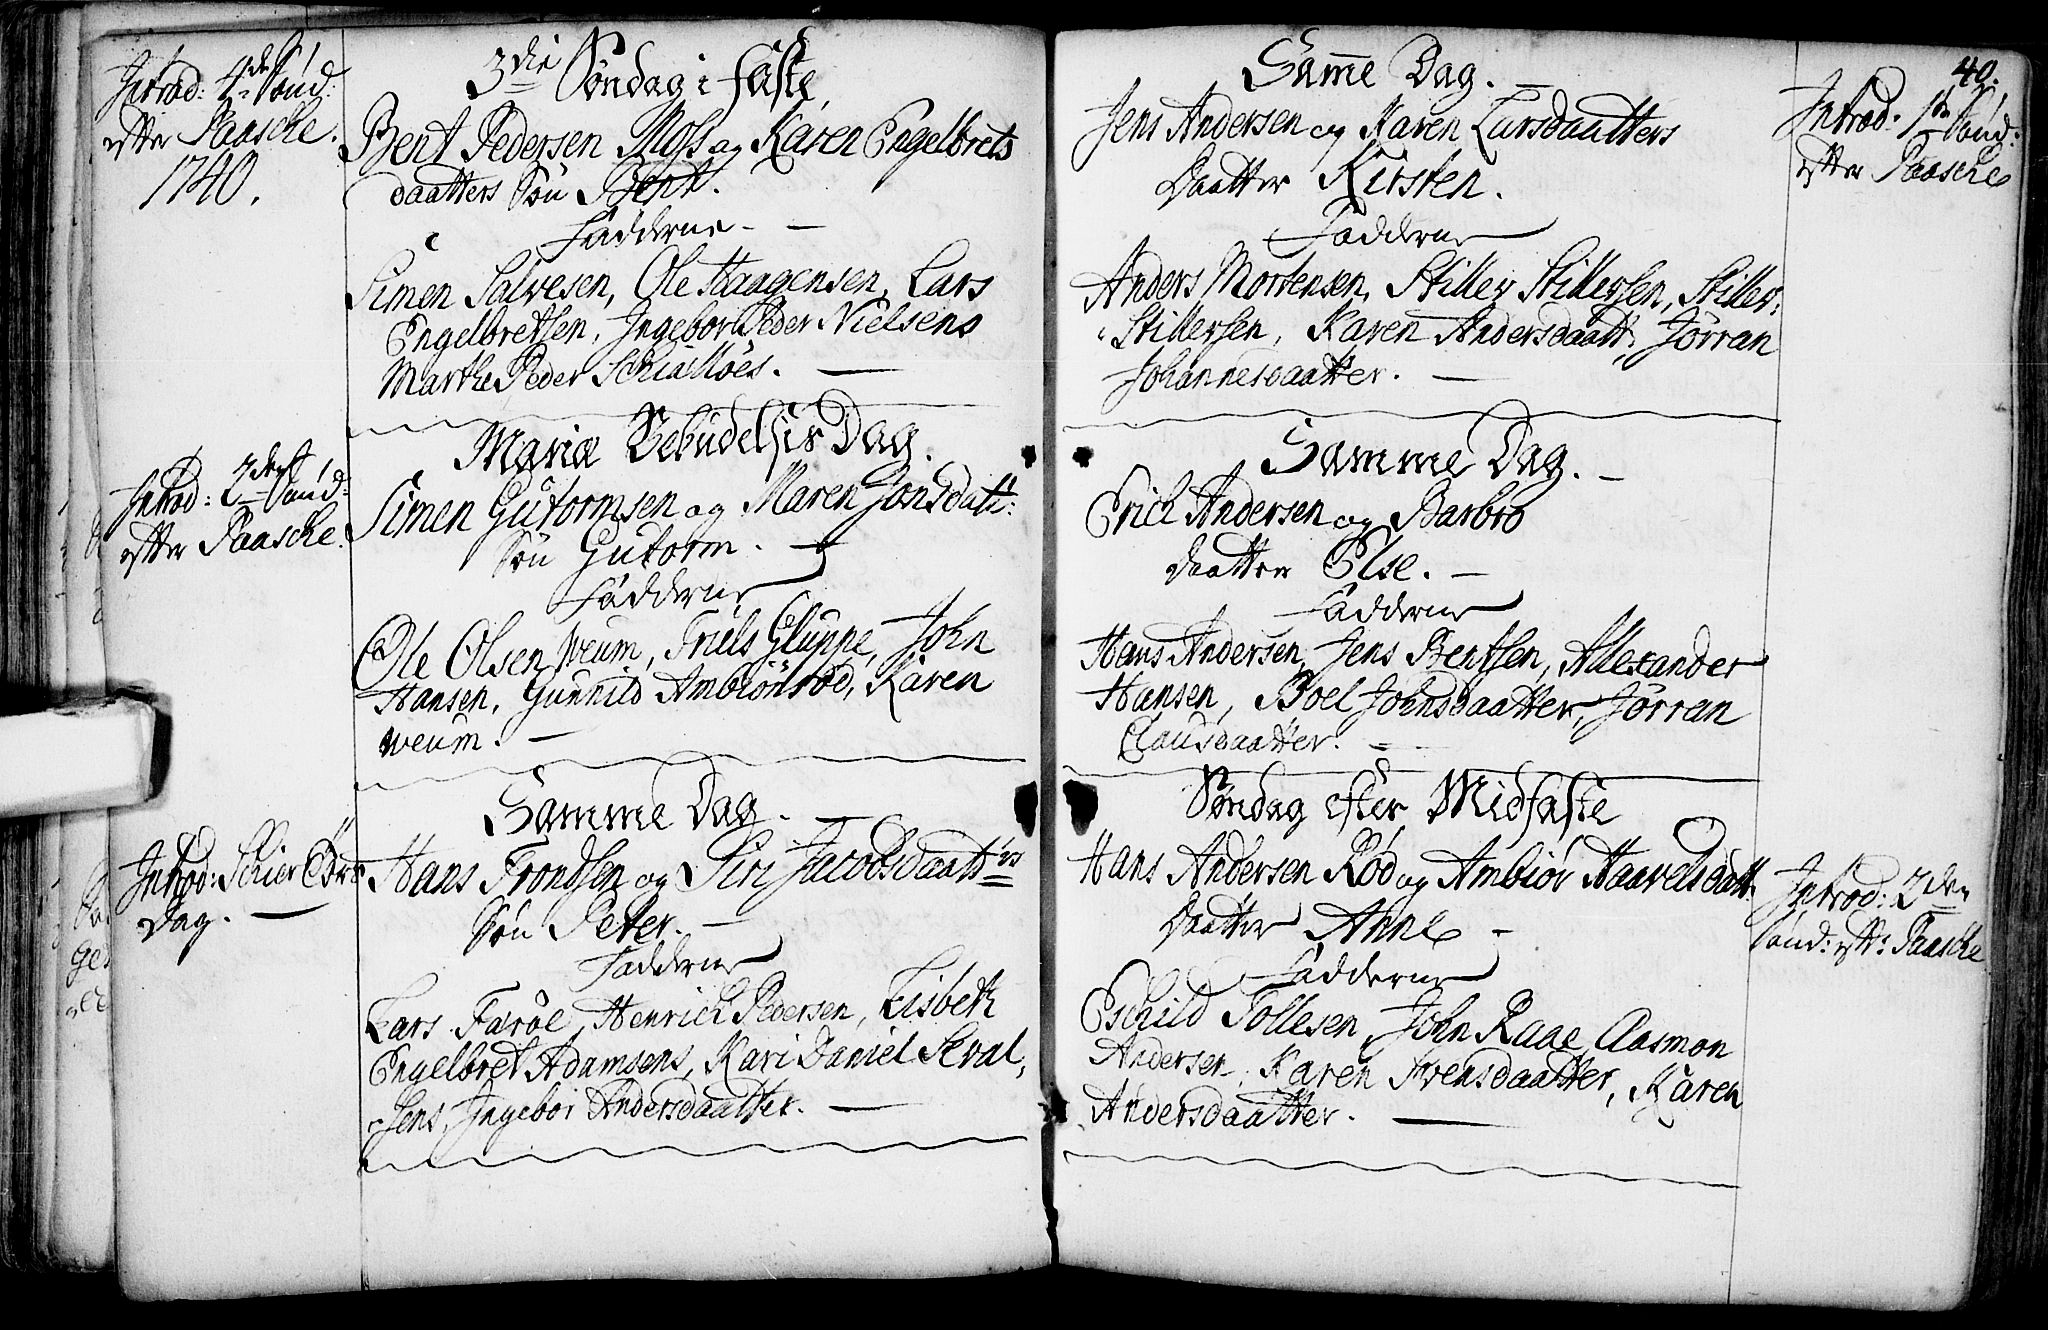 Introd: 4de Sønd:
efter Paasche.
1740.
3die Søndag i Faste
Bent Pedersen Moss og Karen Engelbrets
daatters Søn Bent.
Fadderne
Simen Salvesen, Ole Haagensen, Lars
Engelbretsen, Ingebor Peder Nielsens
Marthe Peder Schialløes.
Introd: 2den Sønd:
efter Paasche.
Mariæ Bebudelsis Dag.
Simen Gutormsen og Maren Jonsdatt:
Søn Gutorm.
Fadderne
Ole Olsen Weum, Truls Gluppe, John
Hansen, Gunnild Ambiønrød, Karen
Weum.
Introd: Schier Tors
Dag.
Samme Dag.
Hans Trondsen og Siri Jacobsdaatters
Søn Peter.
Fadderne
Lars Farøe, Henrich Pedersen, Lisbeth
Engelbret Adamsens, Kari Daniel Seval,
sens, Ingebor Andersdaatter.
40.
Samme Dag.
Jens Andersen og Karen Larsdaatters
Daatter Kirsten.
Fadderne
Anders Mortensen, Stiller Stillersen, Stiller
Stillersen, Karen Andersdaatt, Jørran
Johannesdaatter.
Introd: 1ste Sønd:
efter Paasche
Samme Dag.
Erich Andersen og Barbro
Daatter Else.
Fadderne
Hans Andersen, Jens Bentsen, Allexander
Hansen, Boel Johnsdaatter, Jørran
Clausdaatter.
Søndag efter Midfaste
Hans Andersen Rød og Ambiør Haavelsdatt
Daatter Anne
Fadderne
Eschild Tollesen, John Raae, Aasmon
Andersen, Karen Svensdaatter, Karen
Andersdaatter.
Introd: 2den
Sønd: eft: Paasche